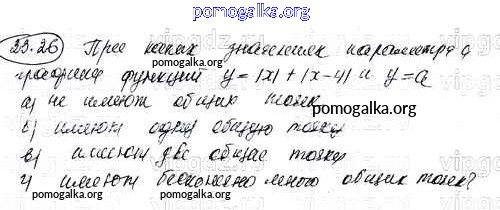 pomogalka.org
23.26 При каких значениях параметра а
графики функций y = |x| + |x-4| и y = a
pomogalka.org
а) не имеют общих точек
pomogalka.org
б) имеют одну общую точку
в) имеют две общие точки
pomogalka.org
г) имеют бесконечно много общих точек?
pomogalka.org